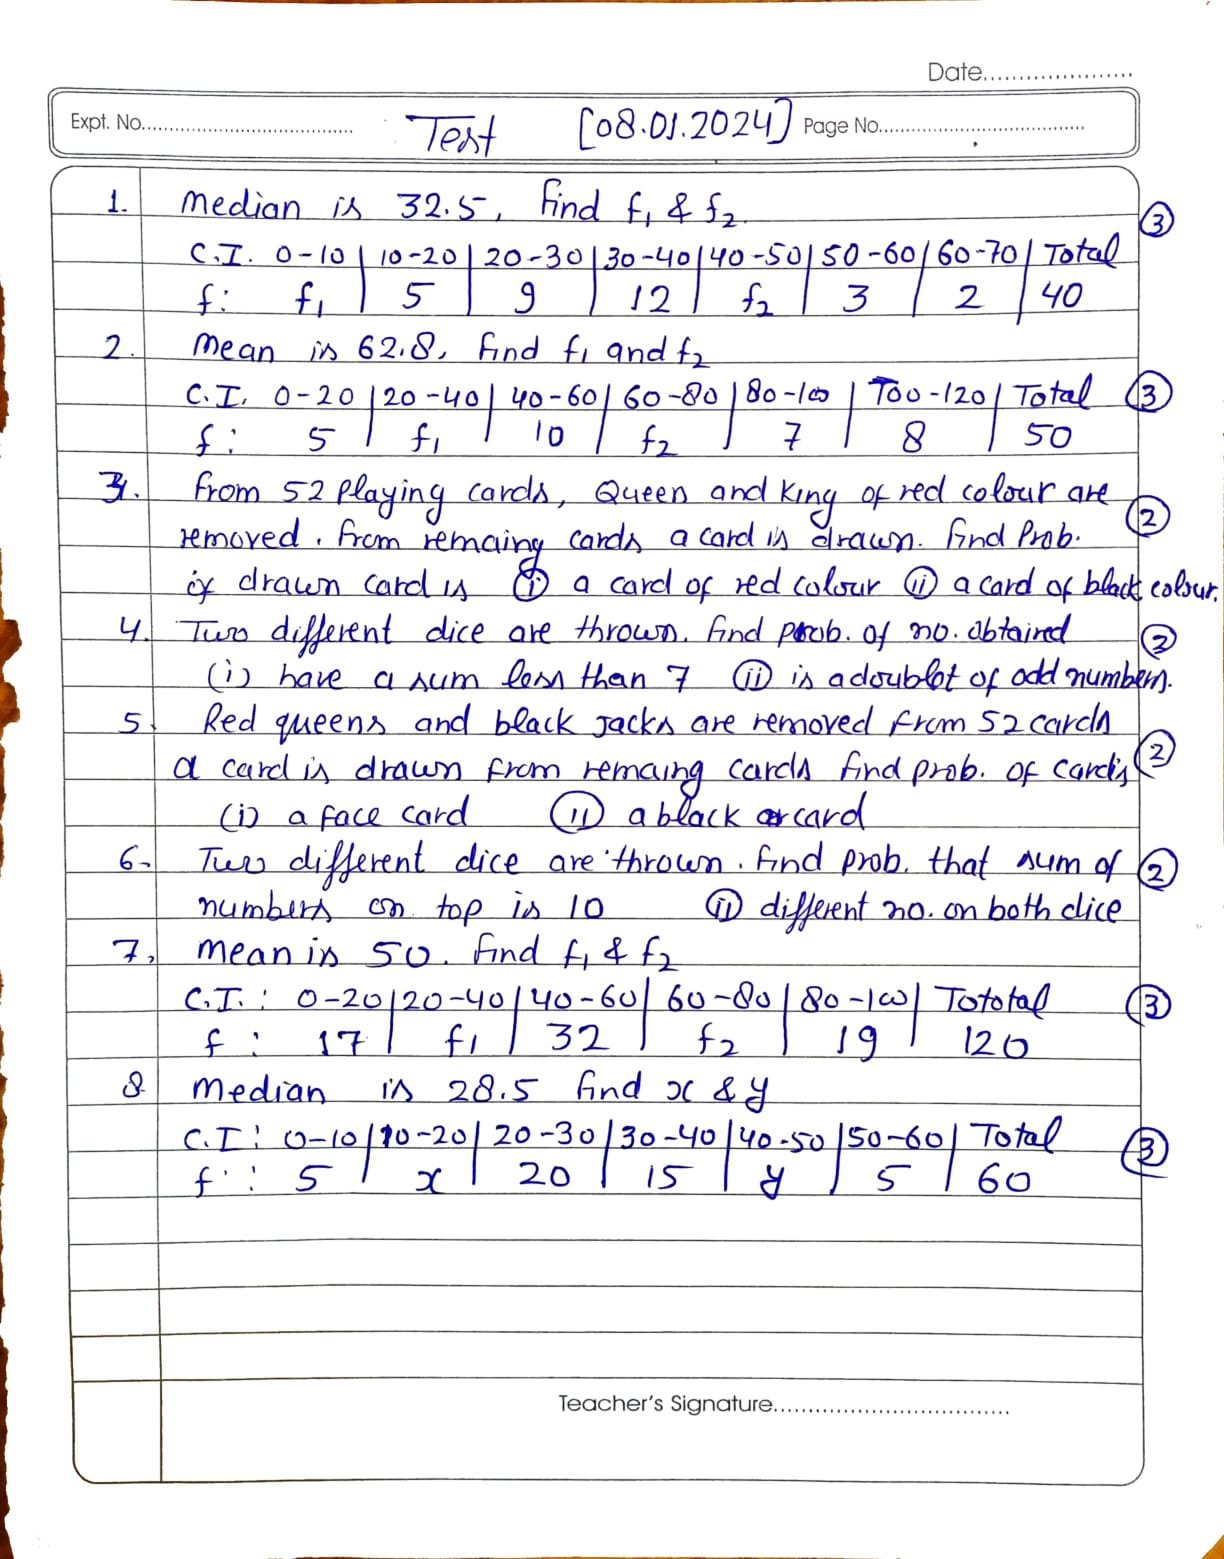 Date......................
Expt. No................................... Test [08.01.2024] Page No...................................
1. Median is 32.5, find f₁ & f₂. ③
C.I. 0-10 | 10-20 | 20-30 | 30-40 | 40-50 | 50-60 | 60-70 | Total
f: f₁ | 5 | 9 | 12 | f₂ | 3 | 2 | 40
2. Mean is 62.8, find f₁ and f₂
C.I. 0-20 | 20-40 | 40-60 | 60-80 | 80-100 | 100-120 | Total ③
f: 5 | f₁ | 10 | f₂ | 7 | 8 | 50
3. From 52 playing cards, Queen and King of red colour are ②
removed. From remaing cards a card is drawn. Find Prob.
if drawn card is ⓘ a card of red colour ⓘⓘ a card of black colour.
4. Two different dice are thrown. Find prob. of no. obtained ②
(i) have a sum less than 7 ⓘⓘ is a doublet of odd numbers.
5. Red queens and black Jacks are removed from 52 cards
a card is drawn from remaing cards find prob. of card is ②
(i) a face card ⓘⓘ a black card
6. Two different dice are thrown. Find prob. that sum of ②
numbers on top is 10 ⓘⓘ different no. on both dice
7. Mean is 50. Find f₁ & f₂
C.I.: 0-20 | 20-40 | 40-60 | 60-80 | 80-100 | Tototal ③
f: 17 | f₁ | 32 | f₂ | 19 | 120
8. Median is 28.5 find x & y
C.I: 0-10 | 10-20 | 20-30 | 30-40 | 40-50 | 50-60 | Total ③
f: 5 | x | 20 | 15 | y | 5 | 60
Teacher's Signature.................................